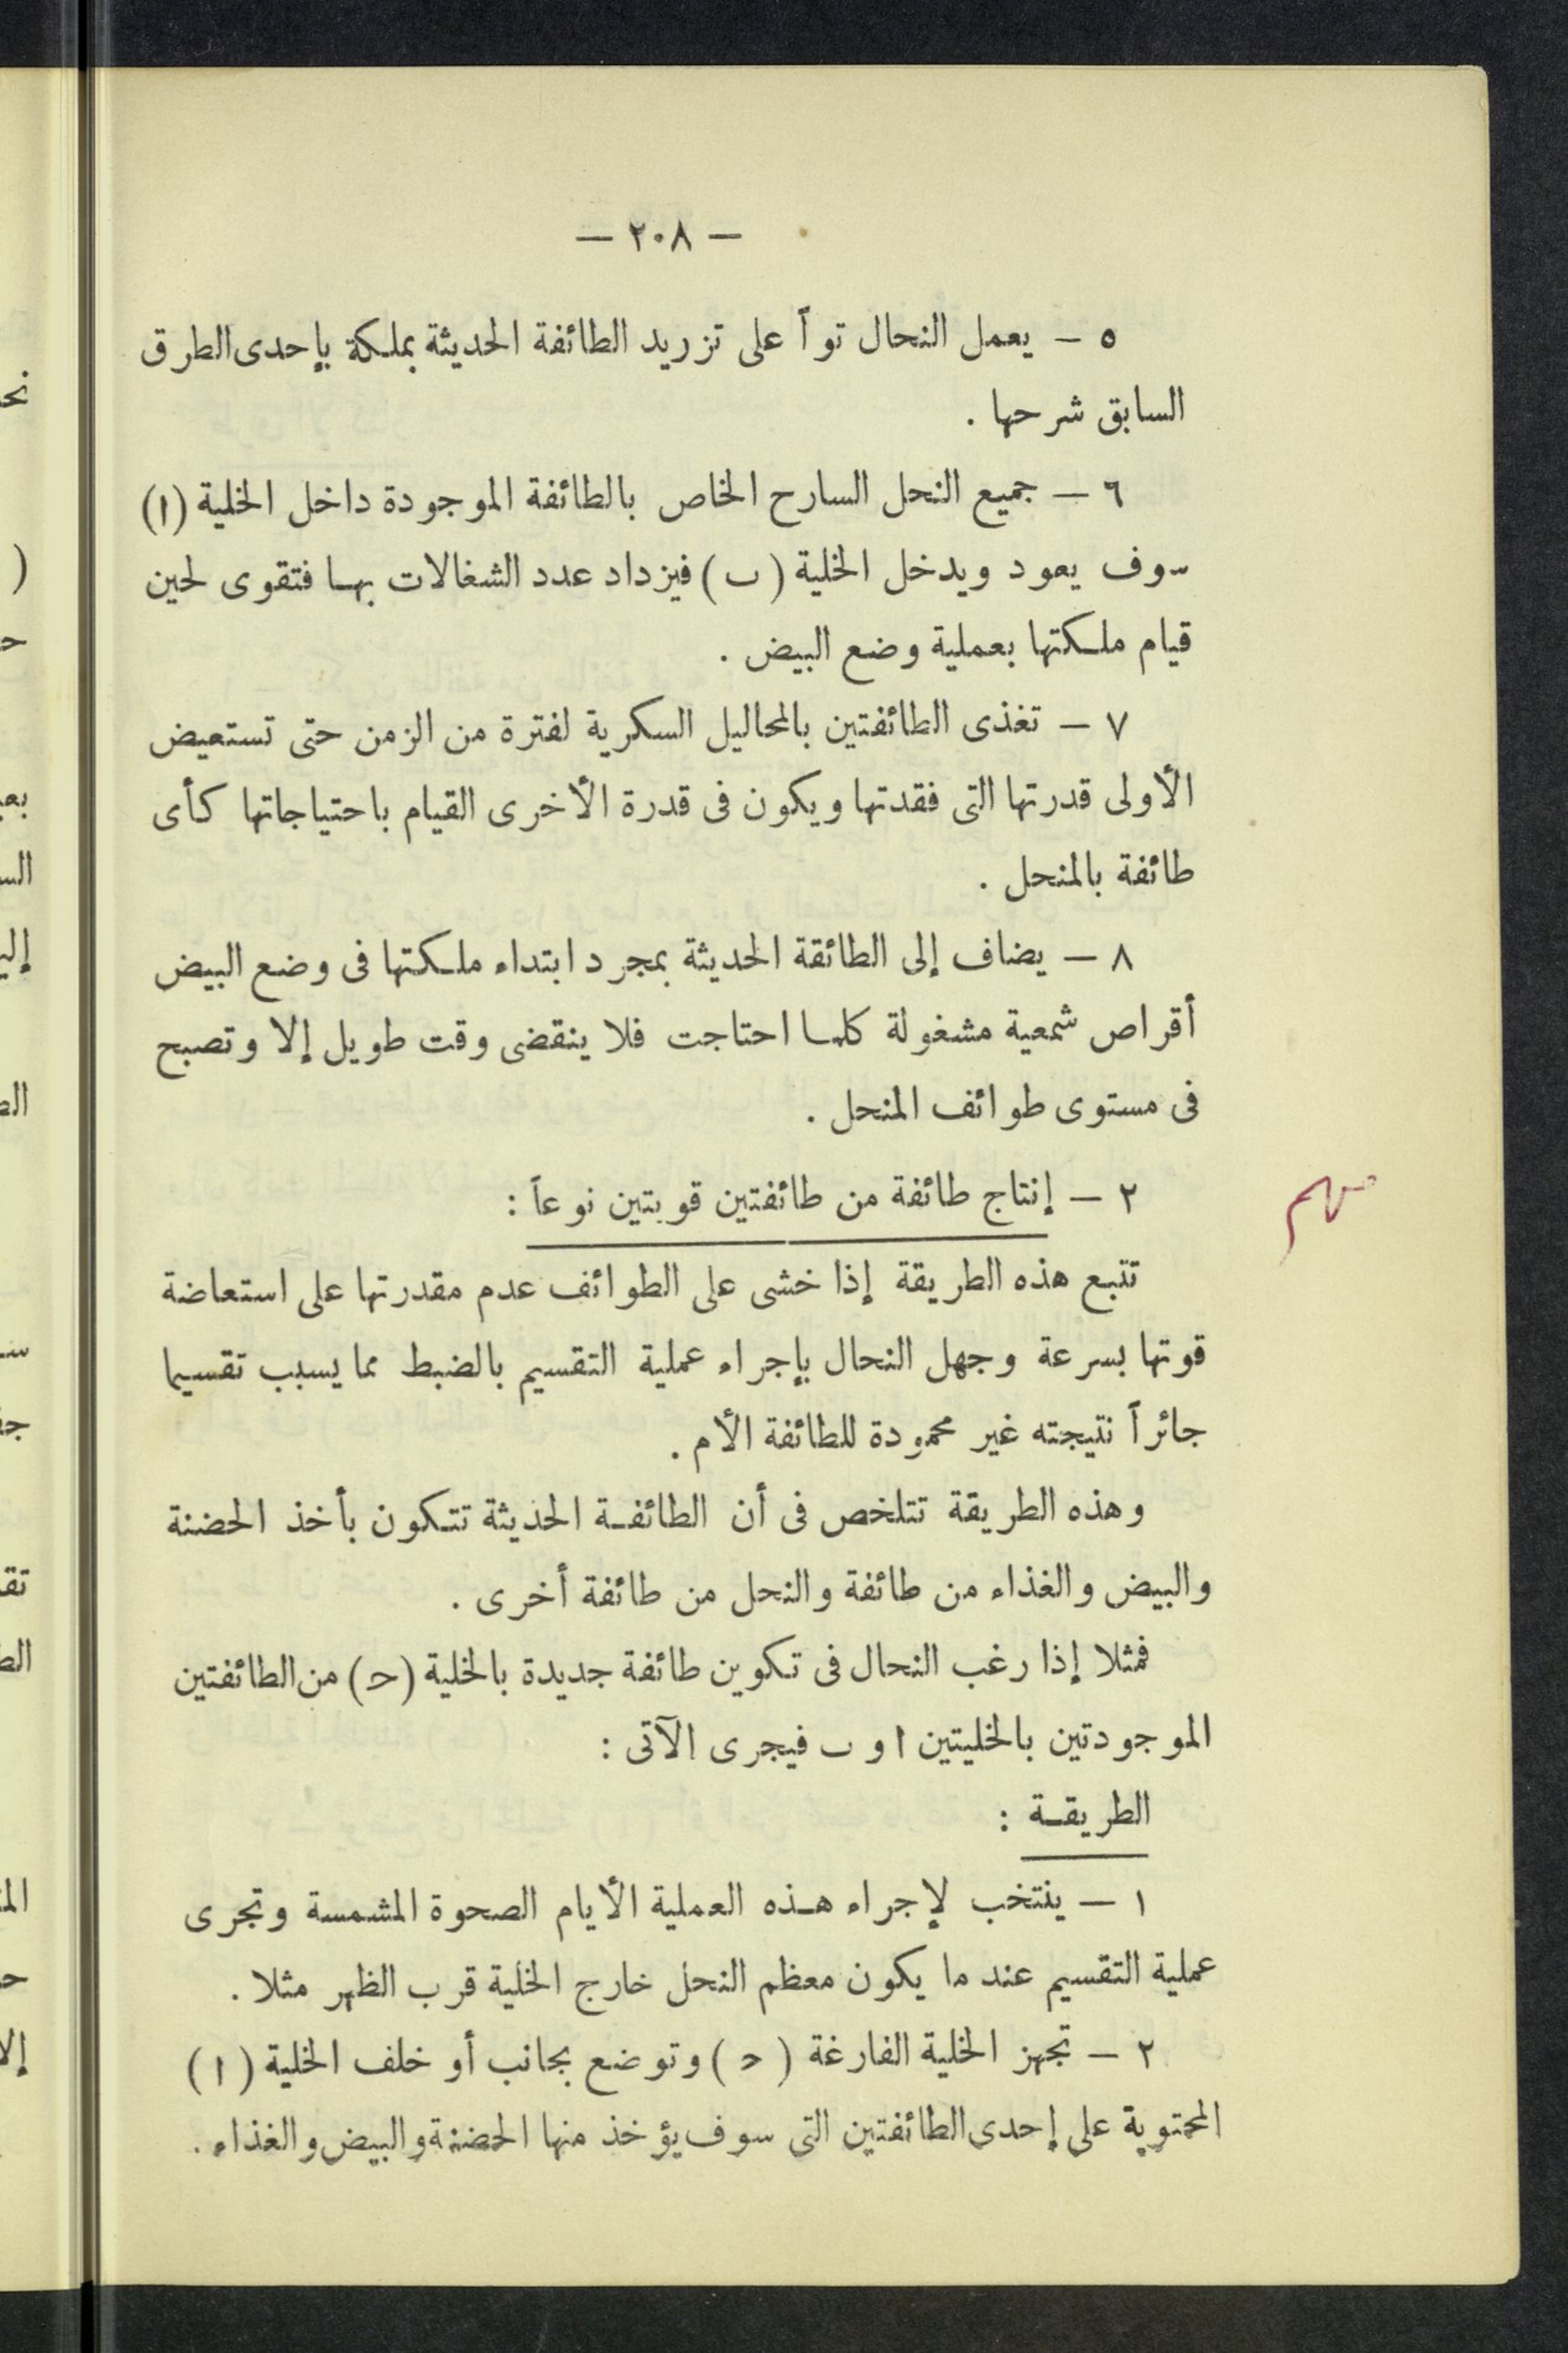 — ٢٠٨ —
٥ — يعمل النحال تواً على تزريد الطائفة الحديثة بملكة بإحدى الطرق
السابق شرحها .
٦ — جميع النحل السارح الخاص بالطائفة الموجودة داخل الخلية (ا)
سوف يعود ويدخل الخلية (ب) فيزداد عدد الشغالات بها فتقوى لحين
قيام ملكتها بعملية وضع البيض .
٧ — تغذى الطائفتين بالمحاليل السكرية لفترة من الزمن حتى تستعيض
الأولى قدرتها التى فقدتها ويكون فى قدرة الأخرى القيام باحتياجاتها كأى
طائفة بالمنحل .
٨ — يضاف إلى الطائقة الحديثة بمجرد ابتداء ملكتها فى وضع البيض
أقراص شمعية مشغولة كلما احتاجت فلا ينقضى وقت طويل إلا وتصبح
فى مستوى طوائف المنحل .
٢ — إنتاج طائفة من طائفتين قويتين نوعاً :
مهم
تتبع هذه الطريقة إذا خشى على الطوائف عدم مقدرتها على استعاضة
قوتها بسرعة وجهل النحال بإجراء عملية التقسيم بالضبط مما يسبب تقسيما
جائراً نتيجته غير محمودة للطائفة الأم .
وهذه الطريقة تتلخص فى أن الطائفة الحديثة تتكون بأخذ الحضنة
والبيض والغذاء من طائفة والنحل من طائفة أخرى .
فمثلا إذا رغب النحال فى تكوين طائفة جديدة بالخلية (ح) من الطائفتين
الموجودتين بالخليتين ا و ب فيجرى الآتى :
الطريقة :
١ — ينتخب لإجراء هذه العملية الأيام الصحوة المشمسة وتجرى
عملية التقسيم عند ما يكون معظم النحل خارج الخلية قرب الظهر مثلا .
٢ — تجهز الخلية الفارغة (ح) وتوضع بجانب أو خلف الخلية (ا)
المحتوية على إحدى الطائفتين التى سوف يؤخذ منها الحضنة والبيض والغذاء .